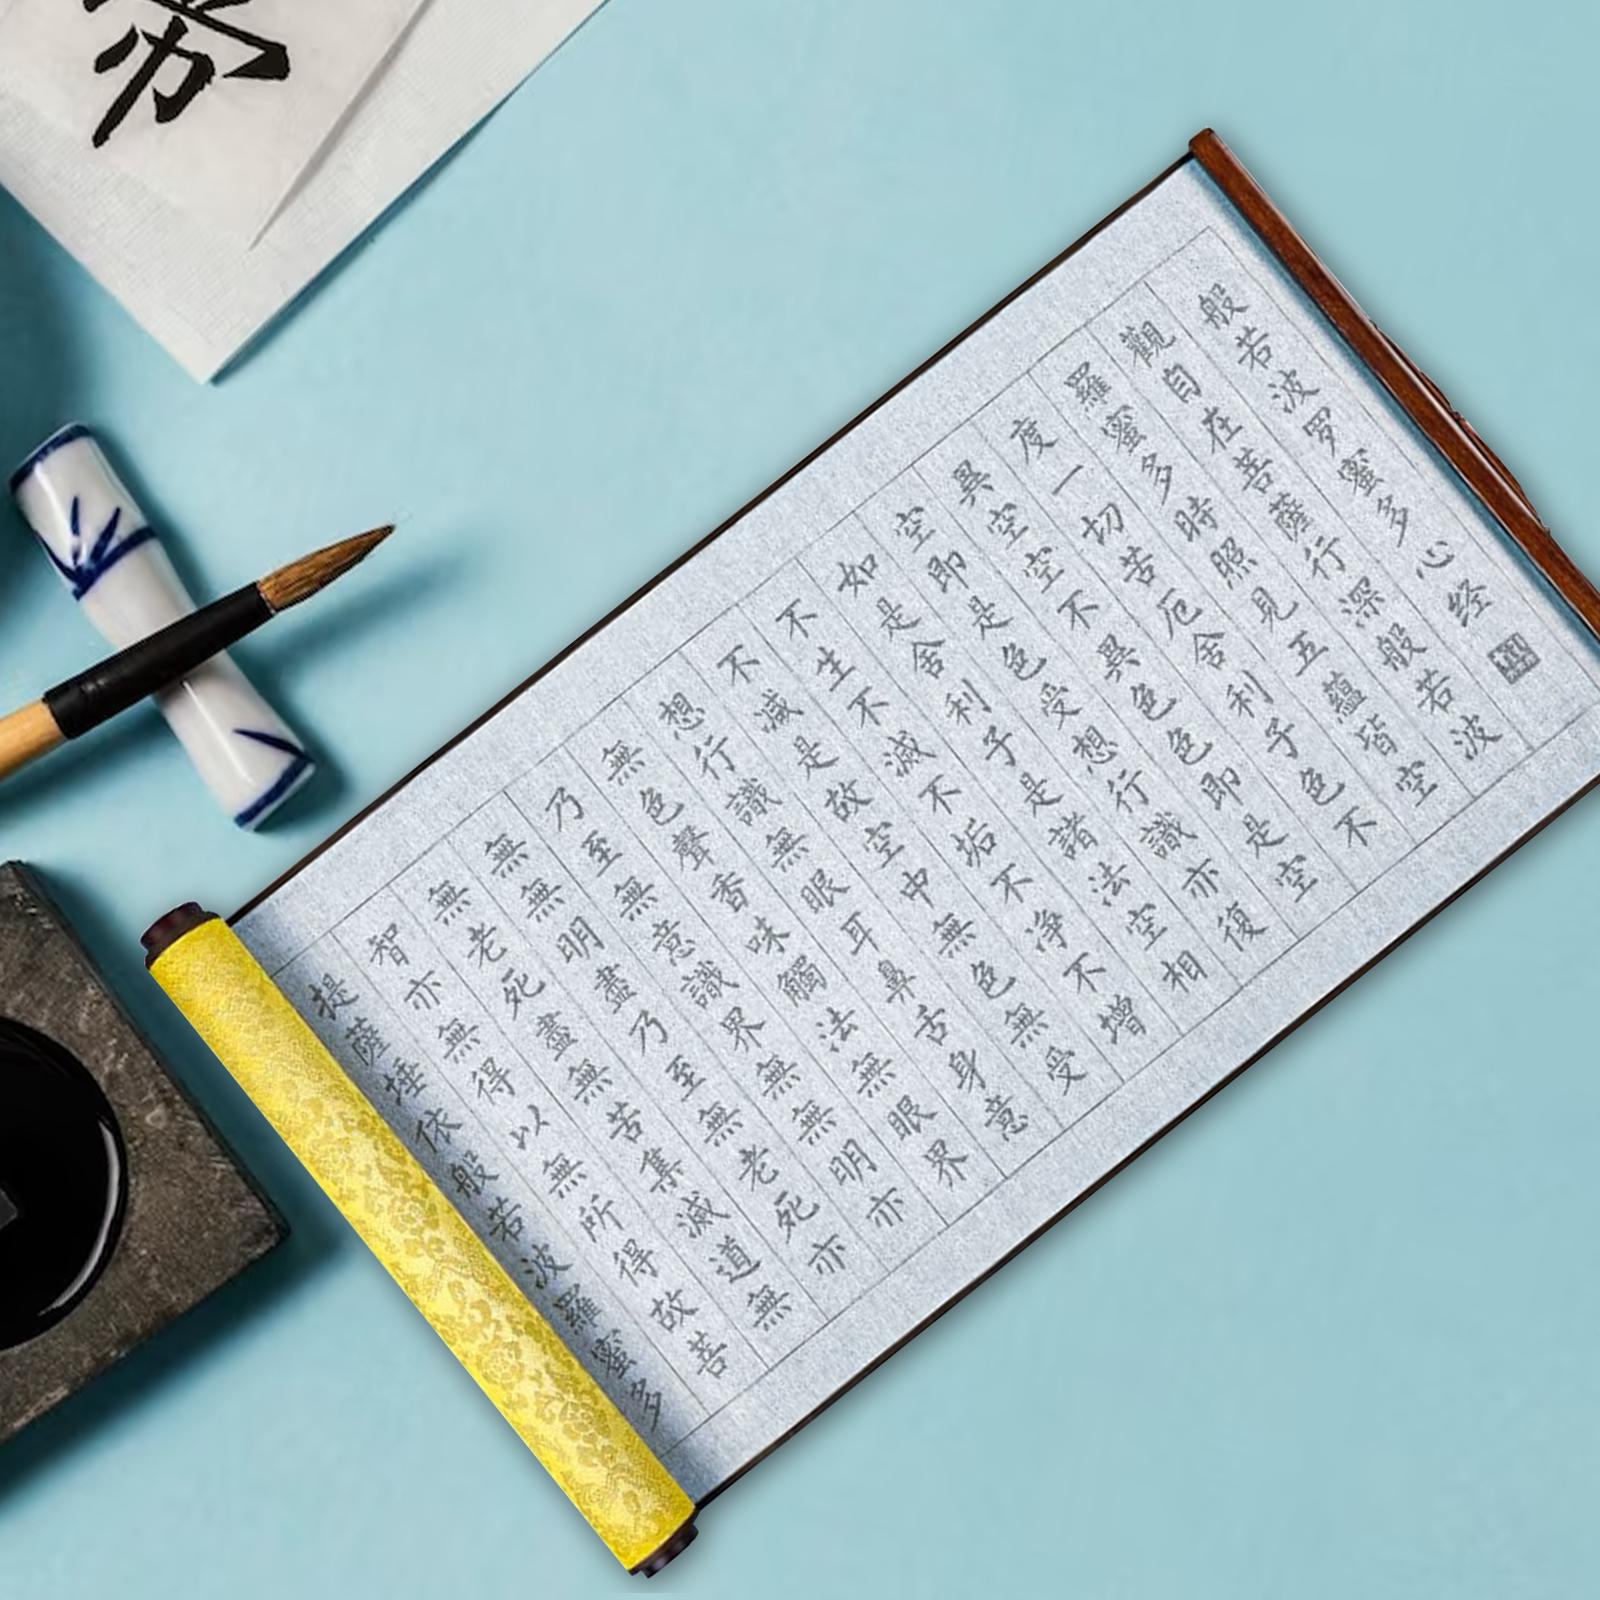 般若波罗蜜多心经
觀自在菩薩行深般若波
羅蜜多時照見五蘊皆空
度一切苦厄舍利子色不
異空空不異色色即是空
空即是色受想行識亦復
如是舍利子是諸法空相
不生不滅不垢不净不增
不減是故空中無色無受
想行識無眼耳鼻舌身意
無色聲香味觸法無眼界
乃至無意識界無無明亦
無無明盡乃至無老死亦
無老死盡無苦集滅道無
智亦無得以無所得故菩
提薩埵依般若波羅蜜多